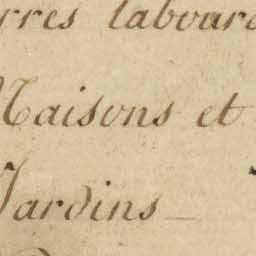 rres labour
Maisons et
Jardins